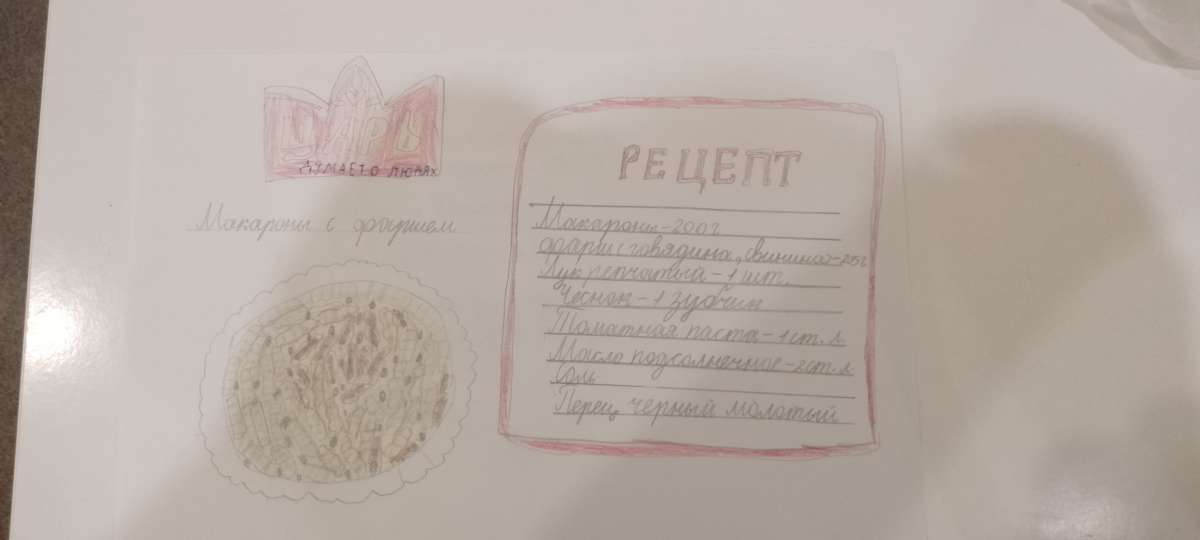 ЦАРЬ
ДУМАЕТ О ЛЮДЯХ
Макароны с фаршем
РЕЦЕПТ
Макароны-200г
фарш(говядина, свинина)-
Лук репчатый-1 шт.
Чеснок-1 зубчик
Томатная паста-1ст.л
Масло подсолнечное-2ст.л
Соль
Перец черный молотый